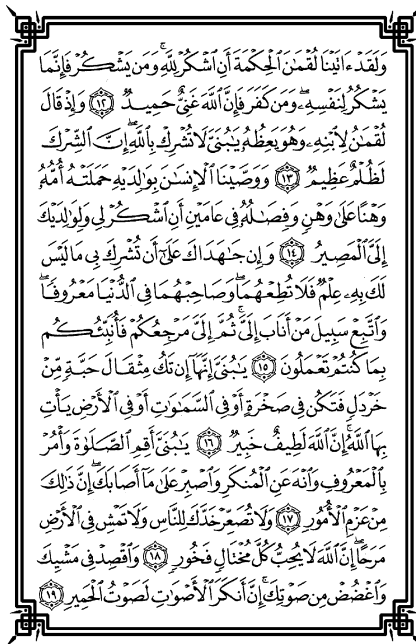 وَلَقَدْ ءَاتَيْنَا لُقْمَٰنَ الْحِكْمَةَ أَنِ اشْكُرْ لِلَّهِ ۚ وَمَن يَشْكُرْ فَإِنَّمَا
يَشْكُرُ لِنَفْسِهِۦ ۖ وَمَن كَفَرَ فَإِنَّ اللَّهَ غَنِيٌّ حَمِيدٌ ﴿١٢﴾ وَإِذْ قَالَ
لُقْمَٰنُ لِابْنِهِۦ وَهُوَ يَعِظُهُۥ يَٰبُنَيَّ لَا تُشْرِكْ بِاللَّهِ ۖ إِنَّ الشِّرْكَ
لَظُلْمٌ عَظِيمٌ ﴿١٣﴾ وَوَصَّيْنَا الْإِنسَٰنَ بِوَٰلِدَيْهِ حَمَلَتْهُ أُمُّهُۥ
وَهْنًا عَلَىٰ وَهْنٍ وَفِصَٰلُهُۥ فِي عَامَيْنِ أَنِ اشْكُرْ لِي وَلِوَٰلِدَيْكَ
إِلَيَّ الْمَصِيرُ ﴿١٤﴾ وَإِن جَٰهَدَاكَ عَلَىٰٓ أَن تُشْرِكَ بِي مَا لَيْسَ
لَكَ بِهِۦ عِلْمٌ فَلَا تُطِعْهُمَا ۖ وَصَاحِبْهُمَا فِي الدُّنْيَا مَعْرُوفًا ۖ
وَاتَّبِعْ سَبِيلَ مَنْ أَنَابَ إِلَيَّ ۚ ثُمَّ إِلَيَّ مَرْجِعُكُمْ فَأُنَبِّئُكُم
بِمَا كُنتُمْ تَعْمَلُونَ ﴿١٥﴾ يَٰبُنَيَّ إِنَّهَآ إِن تَكُ مِثْقَالَ حَبَّةٍ مِّنْ
خَرْدَلٍ فَتَكُن فِي صَخْرَةٍ أَوْ فِي السَّمَٰوَٰتِ أَوْ فِي الْأَرْضِ يَأْتِ
بِهَا اللَّهُ ۚ إِنَّ اللَّهَ لَطِيفٌ خَبِيرٌ ﴿١٦﴾ يَٰبُنَيَّ أَقِمِ الصَّلَوٰةَ وَأْمُرْ
بِالْمَعْرُوفِ وَانْهَ عَنِ الْمُنكَرِ وَاصْبِرْ عَلَىٰ مَآ أَصَابَكَ ۖ إِنَّ ذَٰلِكَ
مِنْ عَزْمِ الْأُمُورِ ﴿١٧﴾ وَلَا تُصَعِّرْ خَدَّكَ لِلنَّاسِ وَلَا تَمْشِ فِي الْأَرْضِ
مَرَحًا ۖ إِنَّ اللَّهَ لَا يُحِبُّ كُلَّ مُخْتَالٍ فَخُورٍ ﴿١٨﴾ وَاقْصِدْ فِي مَشْيِكَ
وَاغْضُضْ مِن صَوْتِكَ ۚ إِنَّ أَنكَرَ الْأَصْوَٰتِ لَصَوْتُ الْحَمِيرِ ﴿١٩﴾